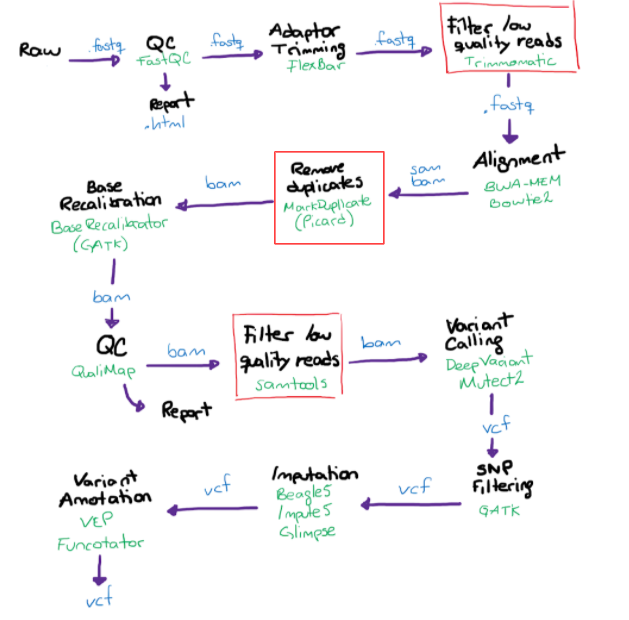 Raw
.fastq
QC
FastQC
.fastq
Adaptor
Trimming
FlexBar
.fastq
Filter low
quality reads
Trimmomatic
Report
.html
.fastq
Alignment
BWA-MEM
Bowtie2
sam
bam
Remove
duplicates
MarkDuplicate
(Picard)
bam
Base
Recalibration
BaseRecalibrator
(GATK)
bam
QC
QualiMap
Report
bam
Filter low
quality reads
samtools
bam
Variant
Calling
DeepVariant
Mutect2
vcf
SNP
Filtering
GATK
vcf
Imputation
Beagle5
Impute5
Glimpse
vcf
Variant
Amotation
VEP
Funcotator
vcf